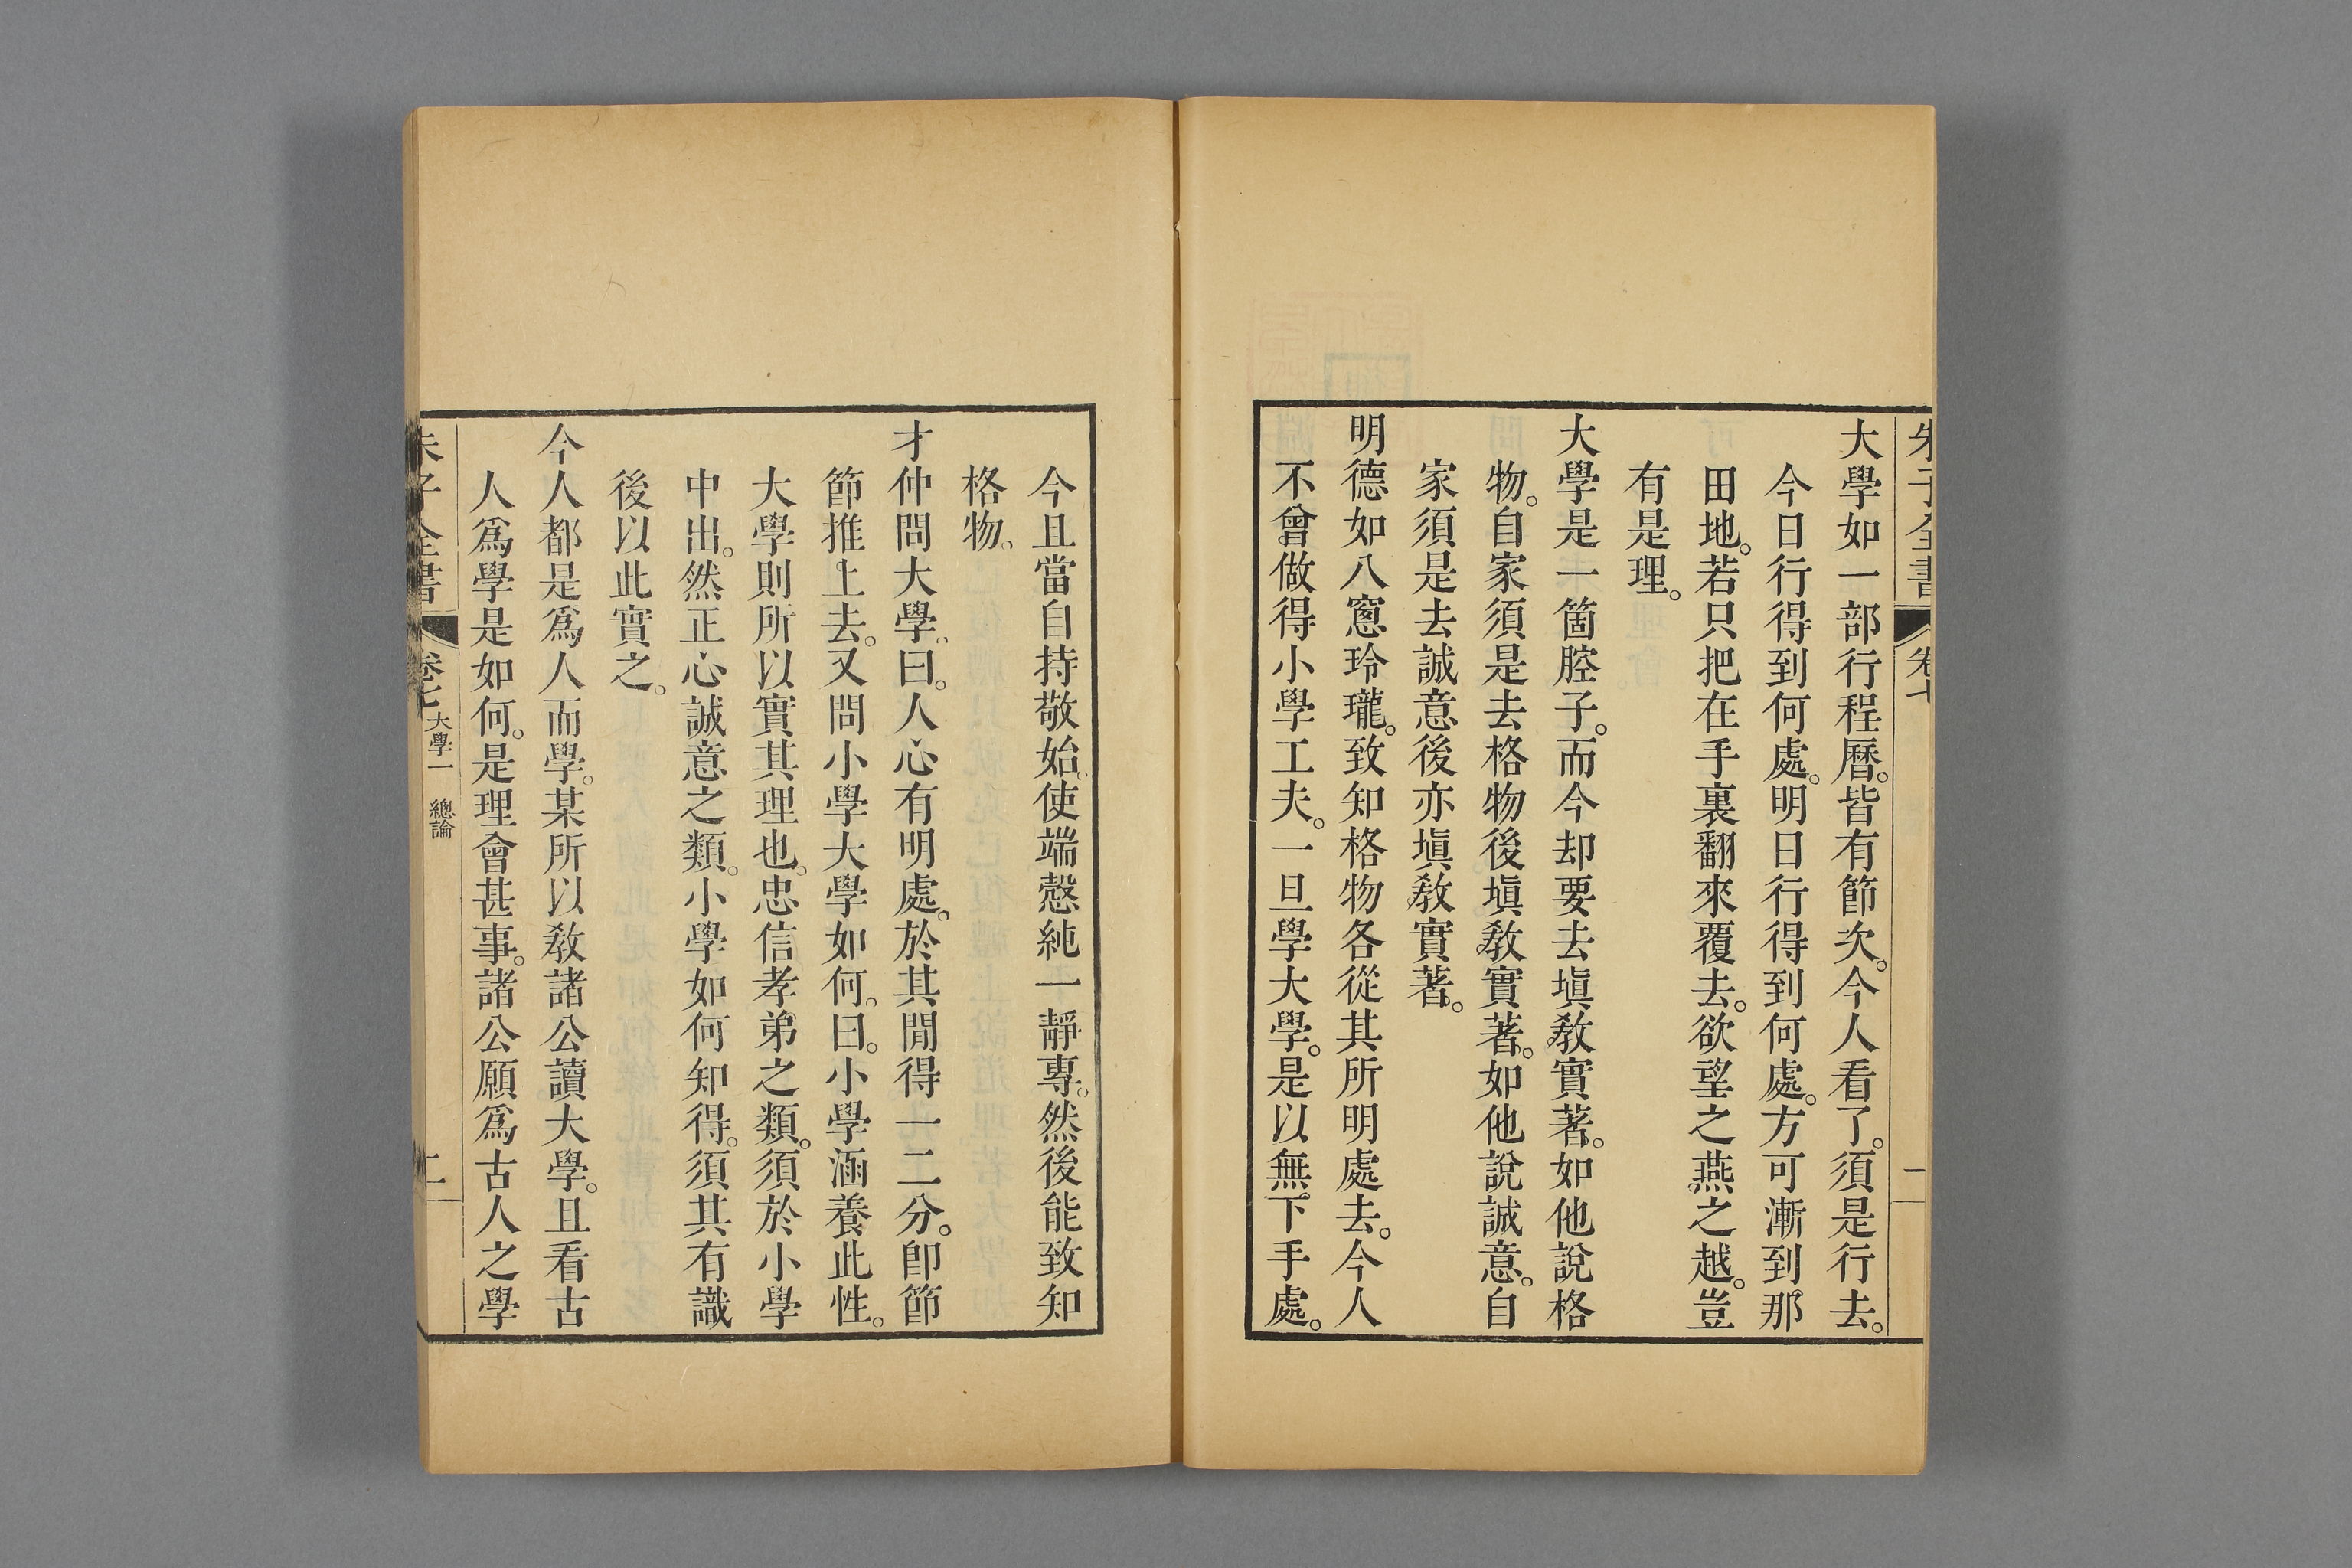 朱子全書 卷七 一
大學如一部行程曆。皆有節次。今人看了。須是行去。
今日行得到何處。明日行得到何處。方可漸到那
田地。若只把在手裏翻來覆去。欲望之燕之越。豈
有是理。
大學是一箇腔子。而今却要去塡敎實著。如他說格
物。自家須是去格物後塡敎實著。如他說誠意。自
家須是去誠意後亦塡敎實著。
明德如八窻玲瓏。致知格物各從其所明處去。今人
不曾做得小學工夫。一旦學大學。是以無下手處。
今且當自持敬始。使端慤純一靜專。然後能致知
格物。
才仲問大學。曰。人心有明處。於其閒得一二分。卽節
節推上去。又問小學大學如何。曰。小學涵養此性。
大學則所以實其理也。忠信孝弟之類。須於小學
中出。然正心誠意之類。小學如何知得。須其有識
後以此實之。
今人都是爲人而學。某所以敎諸公讀大學。且看古
人爲學是如何。是理會甚事。諸公願爲古人之學
朱子全書 卷七 大學一 總論